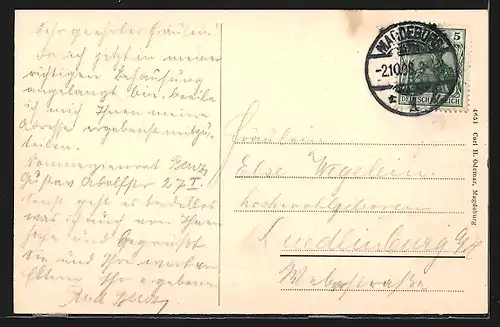 Sehr geehrtes Fräulein!
Da ich jetzt in meiner
richtigen Behausung
angelangt bin, beeile
ich mich Ihnen meine
Adresse ergebenst mitzu-
teilen.
Kommerzienrat Benz,
Gustav Adolfstr 27 I.
Sonst geht es tadellos
was ich auch von Ihnen
hoffe und Gegrüßt
Sie und Ihre werten
Eltern Ihr ergebener
MAGDEBURG
-2.10.08.
* 1
5
DEUTSCHES REICH
Fräulein
Else Wegelein
hochwohlgeboren
Quedlinburg a/H
Weberstraße
4651 Carl H. Odemar, Magdeburg